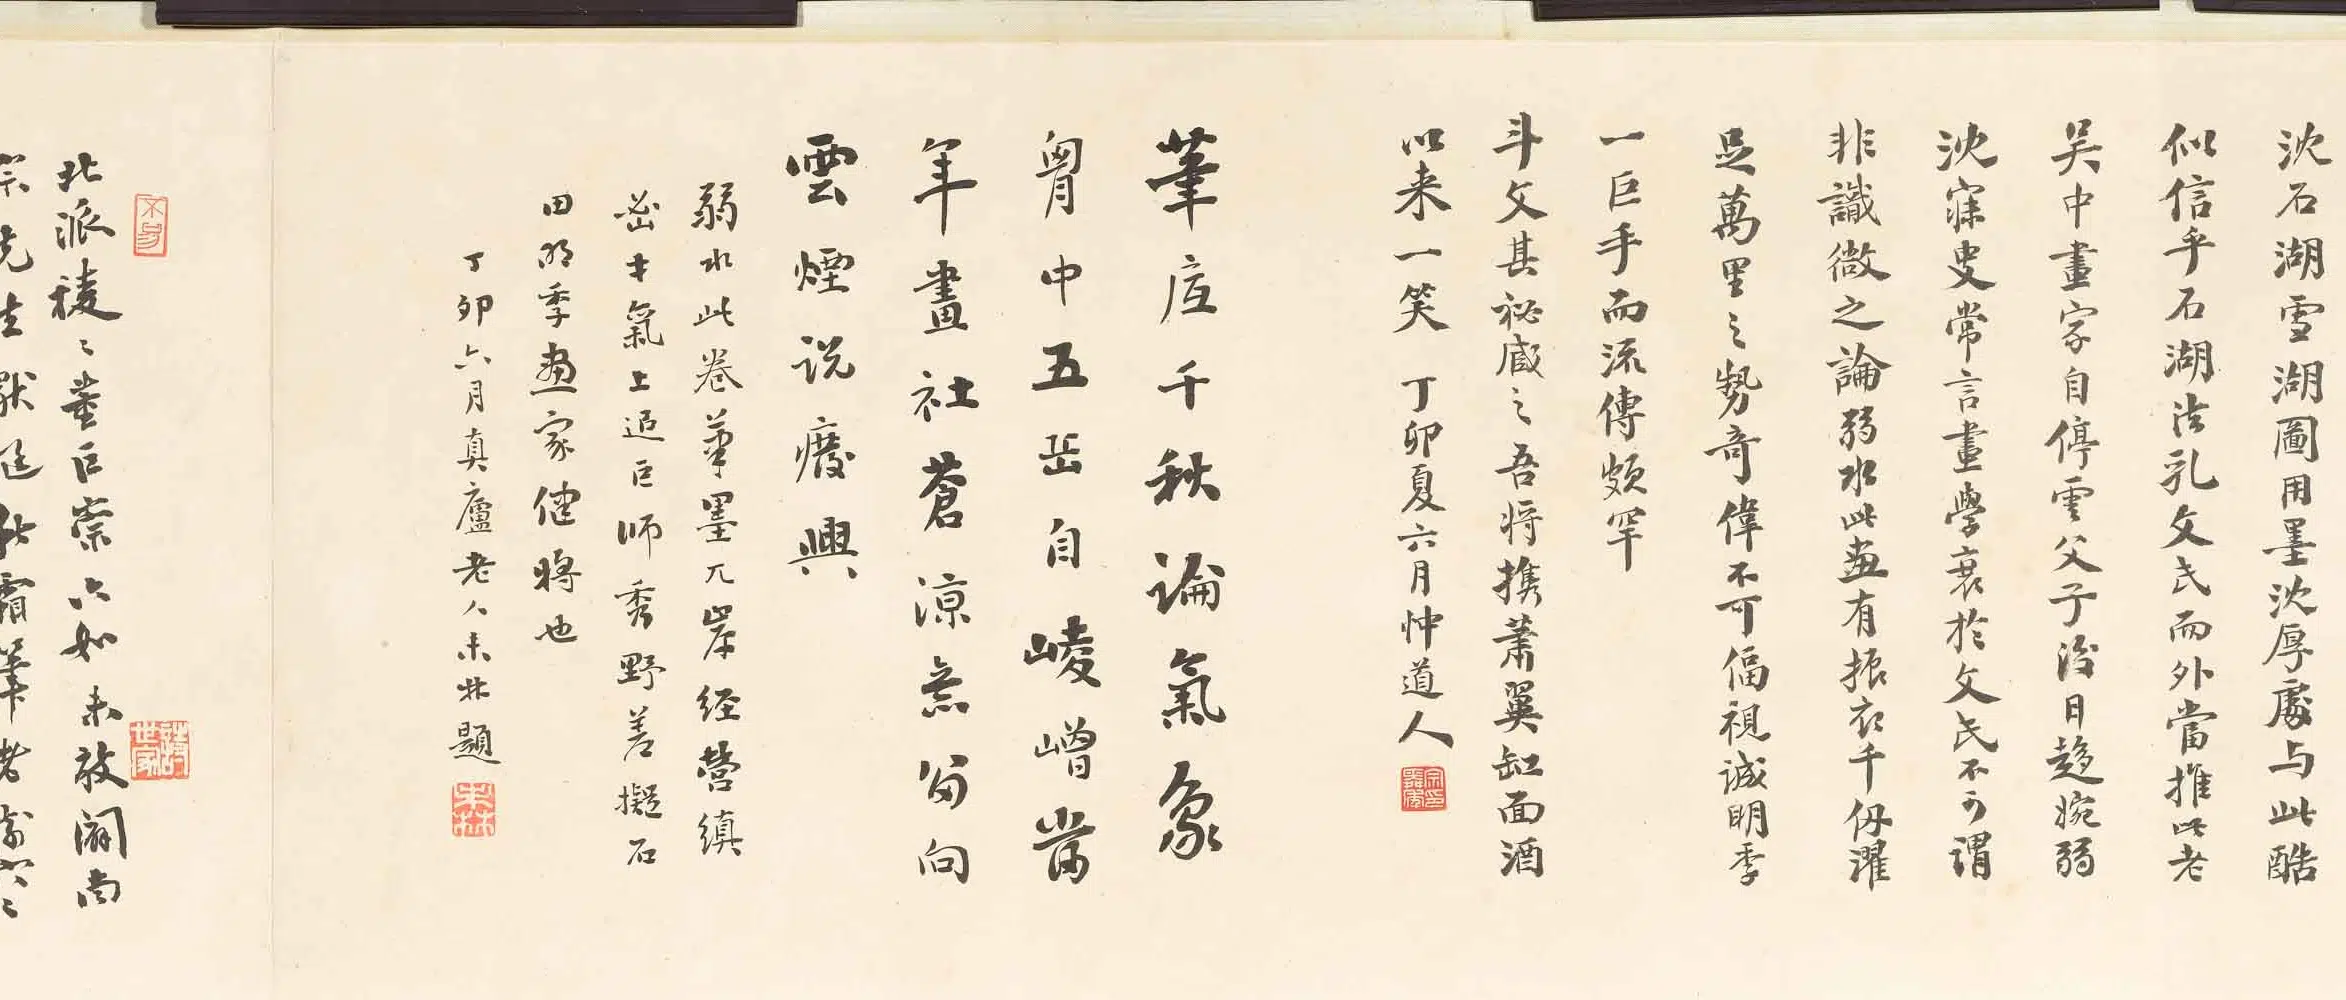 沈石湖雪湖圖用墨沈厚處与此酷
似信乎石湖法乳文氏而外當推此老
吴中畫家自停雲父子後日趨婉弱
沈寐叟常言畫學衰於文氏不可謂
非識微之論弱水此畫有振衣千仞濯
足萬里之勢奇偉不可偪視誠明季
一巨手而流傳頗罕
斗文甚祕嚴之吾將携蕭翼缸面酒
以来一笑 丁卯夏六月忡道人
筆底千秋論氣象
胷中五岳自崚嶒當
年畫社蒼涼甚留向
雲煙説廢興
弱水此卷筆墨兀岸經營縝
密才氣上追巨师秀野差擬石
田明季画家健將也
丁卯六月真廬老人未林題
不易
北派稜〻董巨崇六如未放闢南
世家